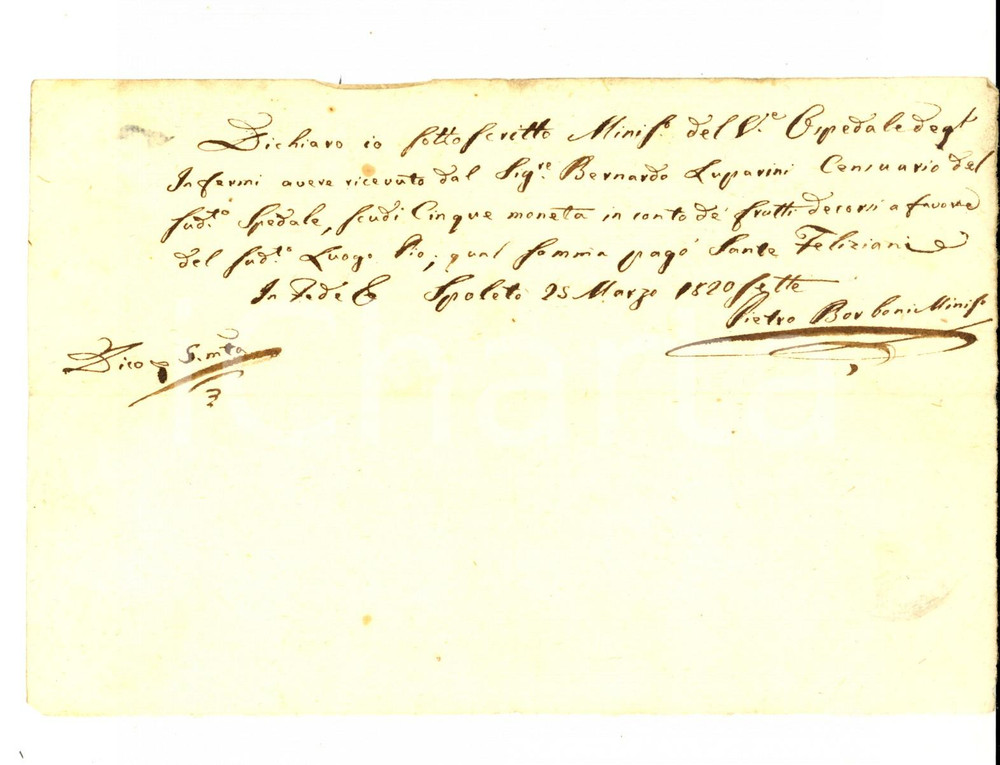 Dichiaro io sottoscritto Minis.º del V.e Ospedale degl'
Infermi avere ricevuto dal Sig.re Bernardo Luparini Censuario del
sud.to Spedale, scudi Cinque moneta in conto de' frutti decorsi a favore
del sud.to Luogo Pio; qual somma pagò Sante Feliziani e
In Fede &c Spoleto 25 Marzo 1820 sette
Pietro Borboni Minis.º
Dico 5. m.ta
iCharta